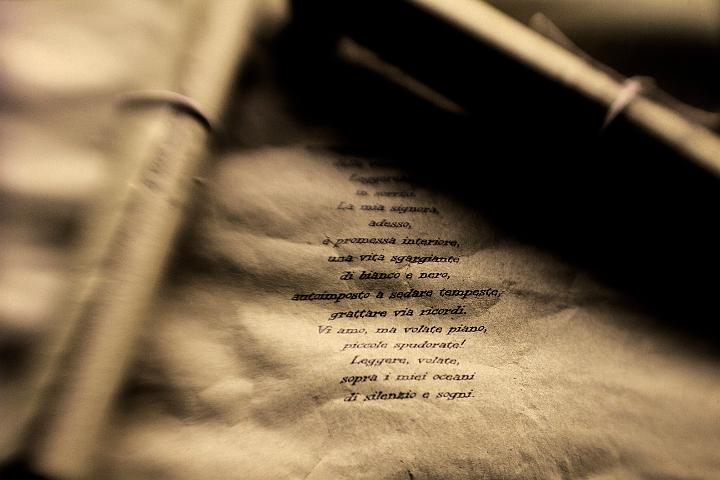 Leggere
in sorrisi.
La mia signora,
adesso,
è promessa interiore,
una vita sgargiante
di bianco e nero,
autoimposto a sedare tempeste,
grattare via ricordi.
Vi amo, ma volate piano,
piccole spudorate!
Leggere, volate,
sopra i miei oceani
di silenzio e sogni.